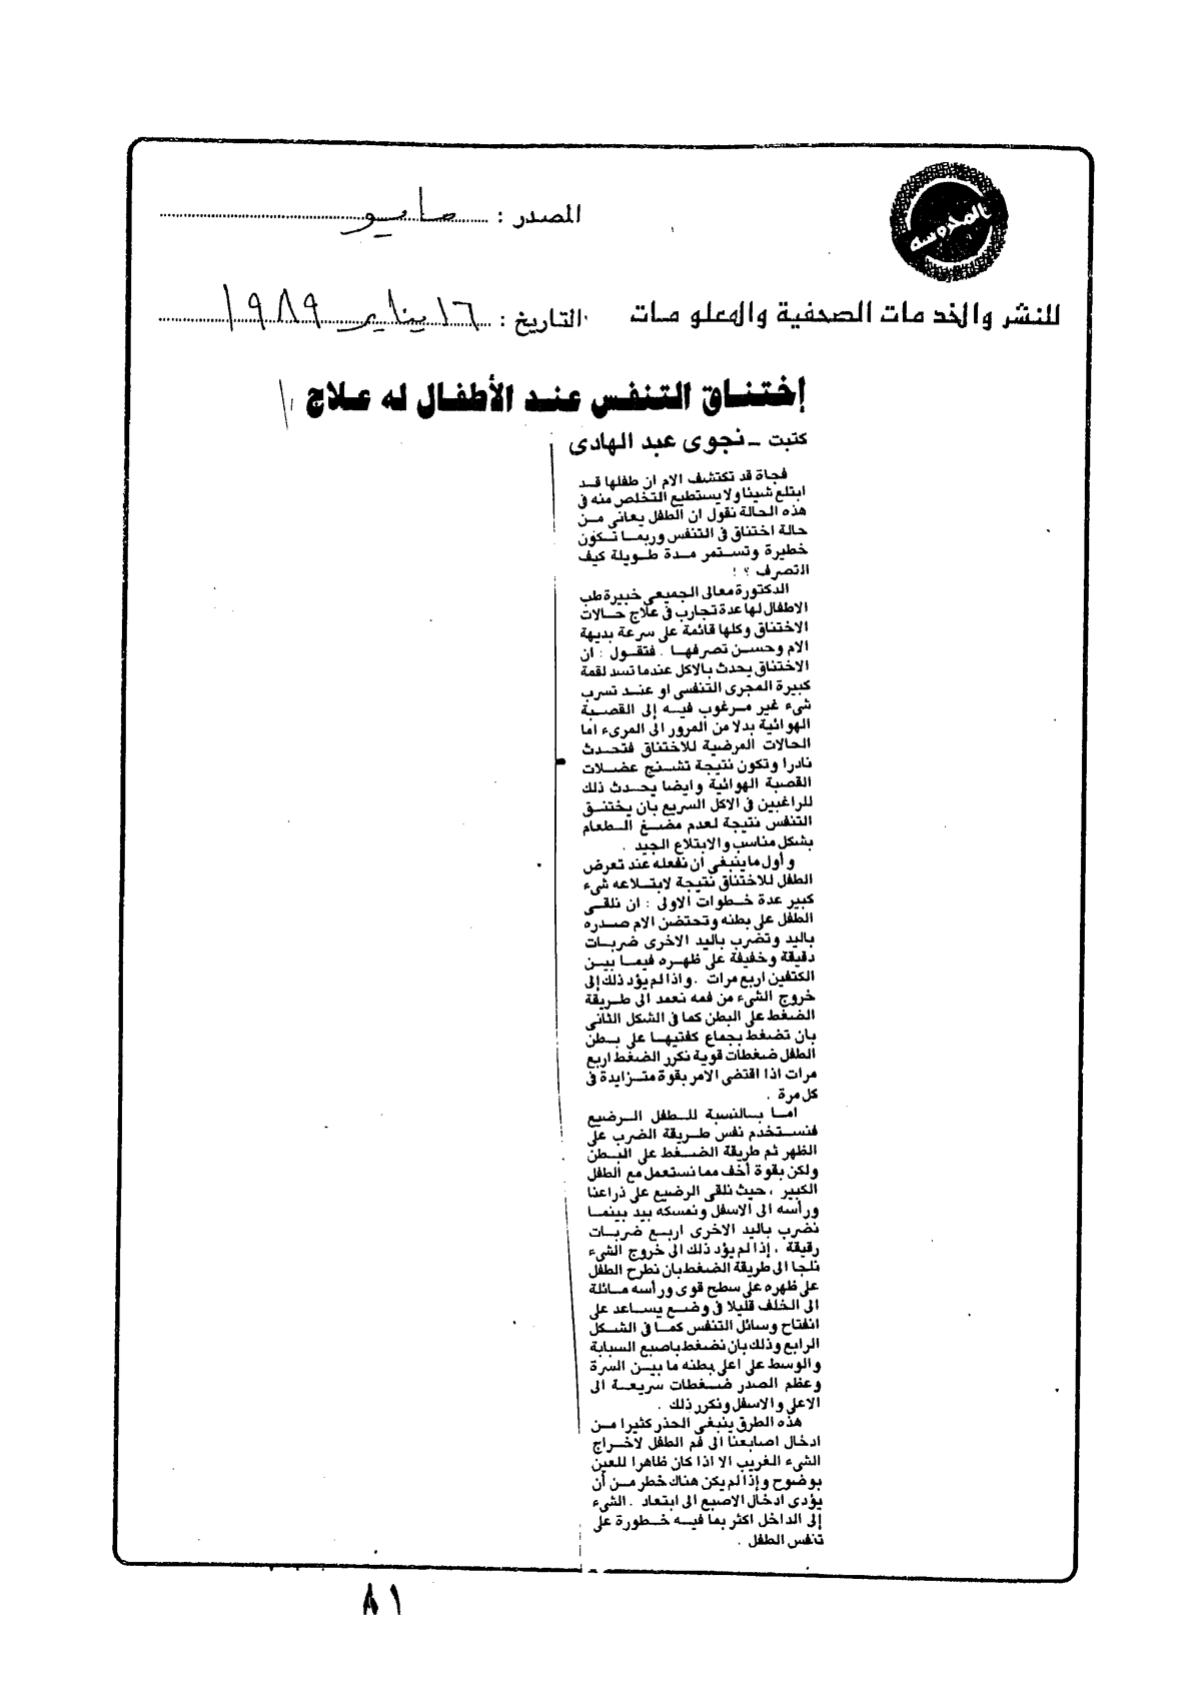 المحروسه
للنشر والخدمات الصحفية والمعلومات
المصدر : مايو
التاريخ : ١٦ يناير ١٩٨٩
إختناق التنفس عند الأطفال له علاج
كتبت ـ نجوى عبد الهادى
فجاة قد تكتشف الام ان طفلها قد
ابتلع شيئا ولا يستطيع التخلص منه فى
هذه الحالة نقول ان الطفل يعانى من
حالة اختناق فى التنفس وربما تكون
خطيرة وتستمر مدة طويلة كيف
التصرف ؟ !
الدكتورة معالى الجميعى خبيرة طب
الاطفال لها عدة تجارب فى علاج حالات
الاختناق وكلها قائمة على سرعة بديهة
الام وحسن تصرفها . فتقول : ان
الاختناق يحدث بالاكل عندما تسد لقمة
كبيرة المجرى التنفسى او عند تسرب
شىء غير مرغوب فيه إلى القصبة
الهوائية بدلا من المرور الى المرىء اما
الحالات المرضية للاختناق فتحدث
نادرا وتكون نتيجة تشنج عضلات
القصبة الهوائية وايضا يحدث ذلك
للراغبين فى الاكل السريع بان يختنق
التنفس نتيجة لعدم مضغ الطعام
بشكل مناسب والابتلاع الجيد .
و أول ما ينبغى أن نفعله عند تعرض
الطفل للاختناق نتيجة لابتلاعه شىء
كبير عدة خطوات الاولى : ان نلقى
الطفل على بطنه وتحتضن الام صدره
باليد وتضرب باليد الاخرى ضربات
دقيقة وخفيفة على ظهره فيما بين
الكتفين اربع مرات . واذا لم يؤد ذلك إلى
خروج الشىء من فمه نعمد الى طريقة
الضغط على البطن كما فى الشكل الثانى
بان تضغط بجماع كفتيها على بطن
الطفل ضغطات قوية نكرر الضغط اربع
مرات اذا اقتضى الامر بقوة متزايدة فى
كل مرة .
اما بالنسبة للطفل الرضيع
فنستخدم نفس طريقة الضرب على
الظهر ثم طريقة الضغط على البطن
ولكن بقوة أخف مما نستعمل مع الطفل
الكبير ، حيث نلقى الرضيع على ذراعنا
ورأسه الى الاسفل ونمسكه بيد بينما
نضرب باليد الاخرى اربع ضربات
رقيقة ، إذا لم يؤد ذلك الى خروج الشىء
نلجا الى طريقة الضغط بان نطرح الطفل
على ظهره على سطح قوى ورأسه مائلة
الى الخلف قليلا فى وضع يساعد على
انفتاح وسائل التنفس كما فى الشكل
الرابع وذلك بان نضغط باصبع السبابة
والوسط على اعلى بطنه ما بين السرة
وعظم الصدر ضغطات سريعة الى
الاعلى والاسفل ونكرر ذلك .
هذه الطرق ينبغى الحذر كثيرا من
ادخال اصابعنا الى فم الطفل لاخراج
الشىء الغريب الا اذا كان ظاهرا للعين
بوضوح وإذا لم يكن هناك خطر من أن
يؤدى ادخال الاصبع الى ابتعاد . الشىء
إلى الداخل اكثر بما فيه خطورة على
تنفس الطفل .
٨١